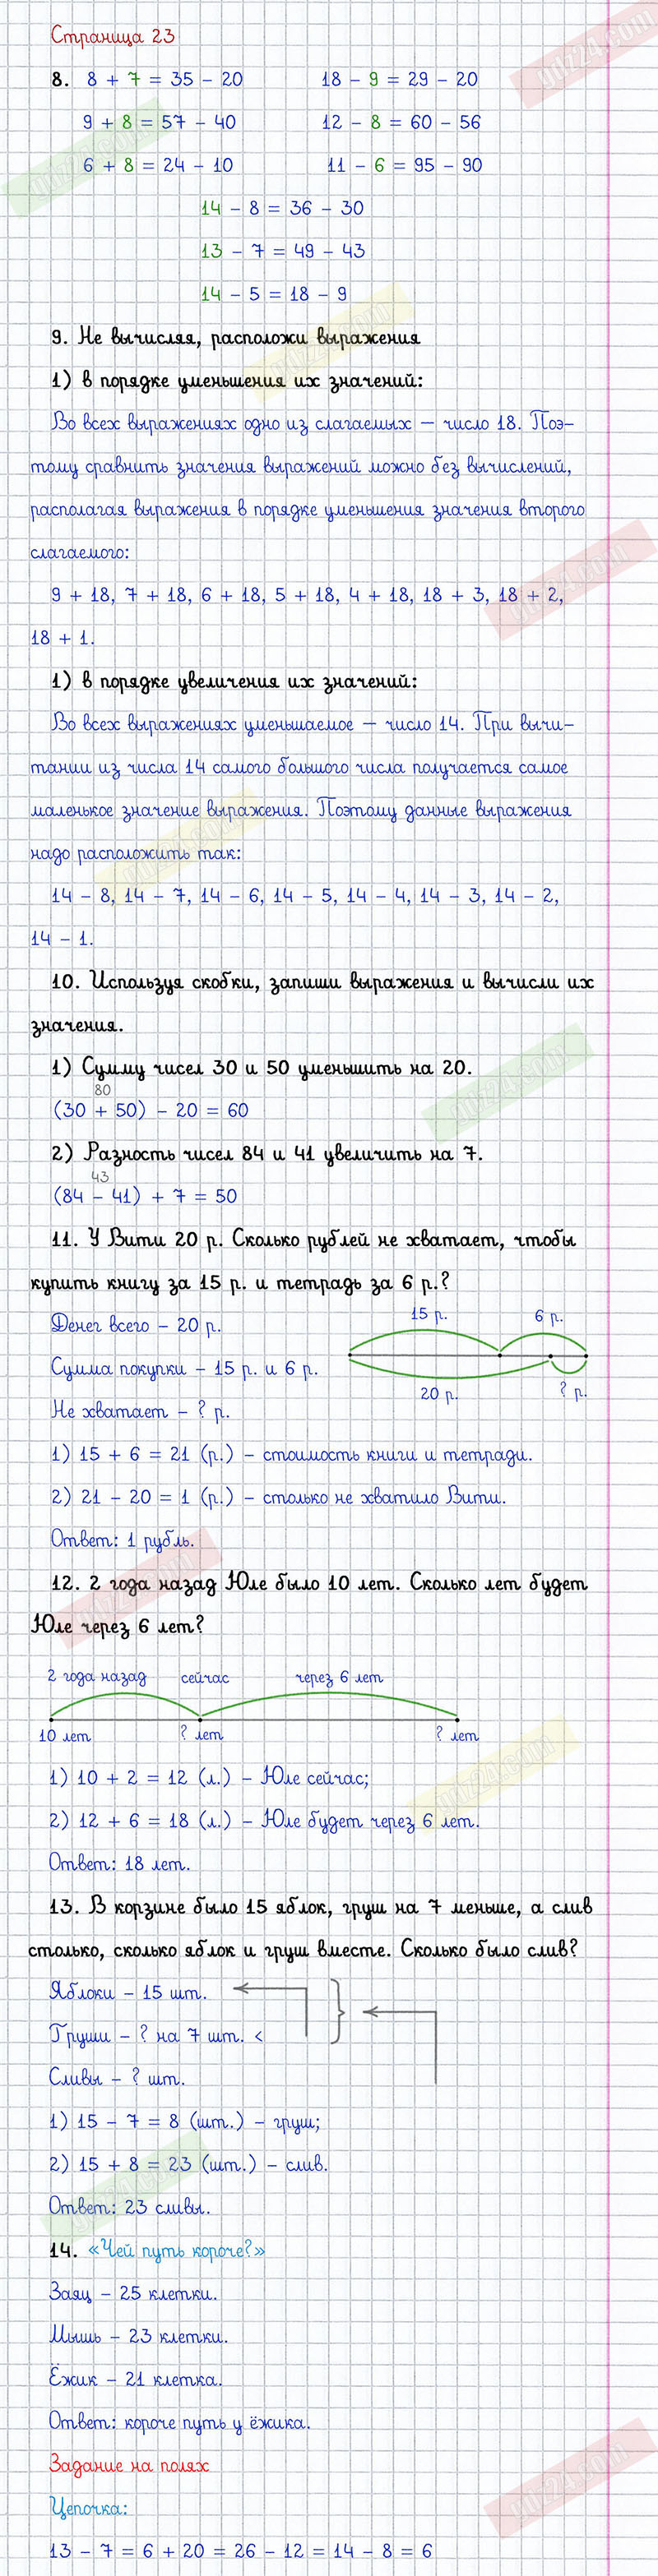 Страница 23
8. 8 + 7 = 35 - 20 18 - 9 = 29 - 20
9 + 8 = 57 - 40 12 - 8 = 60 - 56
6 + 8 = 24 - 10 11 - 6 = 95 - 90
14 - 8 = 36 - 30
13 - 7 = 49 - 43
14 - 5 = 18 - 9
9. Не вычисляя, расположи выражения
1) в порядке уменьшения их значений:
Во всех выражениях одно из слагаемых — число 18. Поэ-
тому сравнить значения выражений можно без вычислений,
располагая выражения в порядке уменьшения значения второго
слагаемого:
9 + 18, 7 + 18, 6 + 18, 5 + 18, 4 + 18, 18 + 3, 18 + 2,
18 + 1.
1) в порядке увеличения их значений:
Во всех выражениях уменьшаемое — число 14. При вычи-
тании из числа 14 самого большого числа получается самое
маленькое значение выражения. Поэтому данные выражения
надо расположить так:
14 - 8, 14 - 7, 14 - 6, 14 - 5, 14 - 4, 14 - 3, 14 - 2,
14 - 1.
10. Используя скобки, запиши выражения и вычисли их
значения.
1) Сумму чисел 30 и 50 уменьшить на 20.
80
(30 + 50) - 20 = 60
2) Разность чисел 84 и 41 увеличить на 7.
43
(84 - 41) + 7 = 50
11. У Вити 20 р. Сколько рублей не хватает, чтобы
купить книгу за 15 р. и тетрадь за 6 р.?
15 р. 6 р.
Денег всего - 20 р.
Сумма покупки - 15 р. и 6 р.
20 р. ? р.
Не хватает - ? р.
1) 15 + 6 = 21 (р.) - стоимость книги и тетради.
2) 21 - 20 = 1 (р.) - столько не хватило Вити.
Ответ: 1 рубль.
12. 2 года назад Юле было 10 лет. Сколько лет будет
Юле через 6 лет?
2 года назад сейчас через 6 лет
10 лет ? лет ? лет
1) 10 + 2 = 12 (л.) - Юле сейчас;
2) 12 + 6 = 18 (л.) - Юле будет через 6 лет.
Ответ: 18 лет.
13. В корзине было 15 яблок, груш на 7 меньше, а слив
столько, сколько яблок и груш вместе. Сколько было слив?
Яблоки - 15 шт.
Груши - ? на 7 шт. <
Сливы - ? шт.
1) 15 - 7 = 8 (шт.) - груш;
2) 15 + 8 = 23 (шт.) - слив.
Ответ: 23 сливы.
14. «Чей путь короче?»
Заяц - 25 клетки.
Мышь - 23 клетки.
Ёжик - 21 клетка.
Ответ: короче путь у ёжика.
Задание на полях
Цепочка:
13 - 7 = 6 + 20 = 26 - 12 = 14 - 8 = 6
gdz24.com
gdz24.com
gdz24.com
gdz24.com
gdz24.com
gdz24.com
gdz24.com
gdz24.com
gdz24.com
gdz24.com